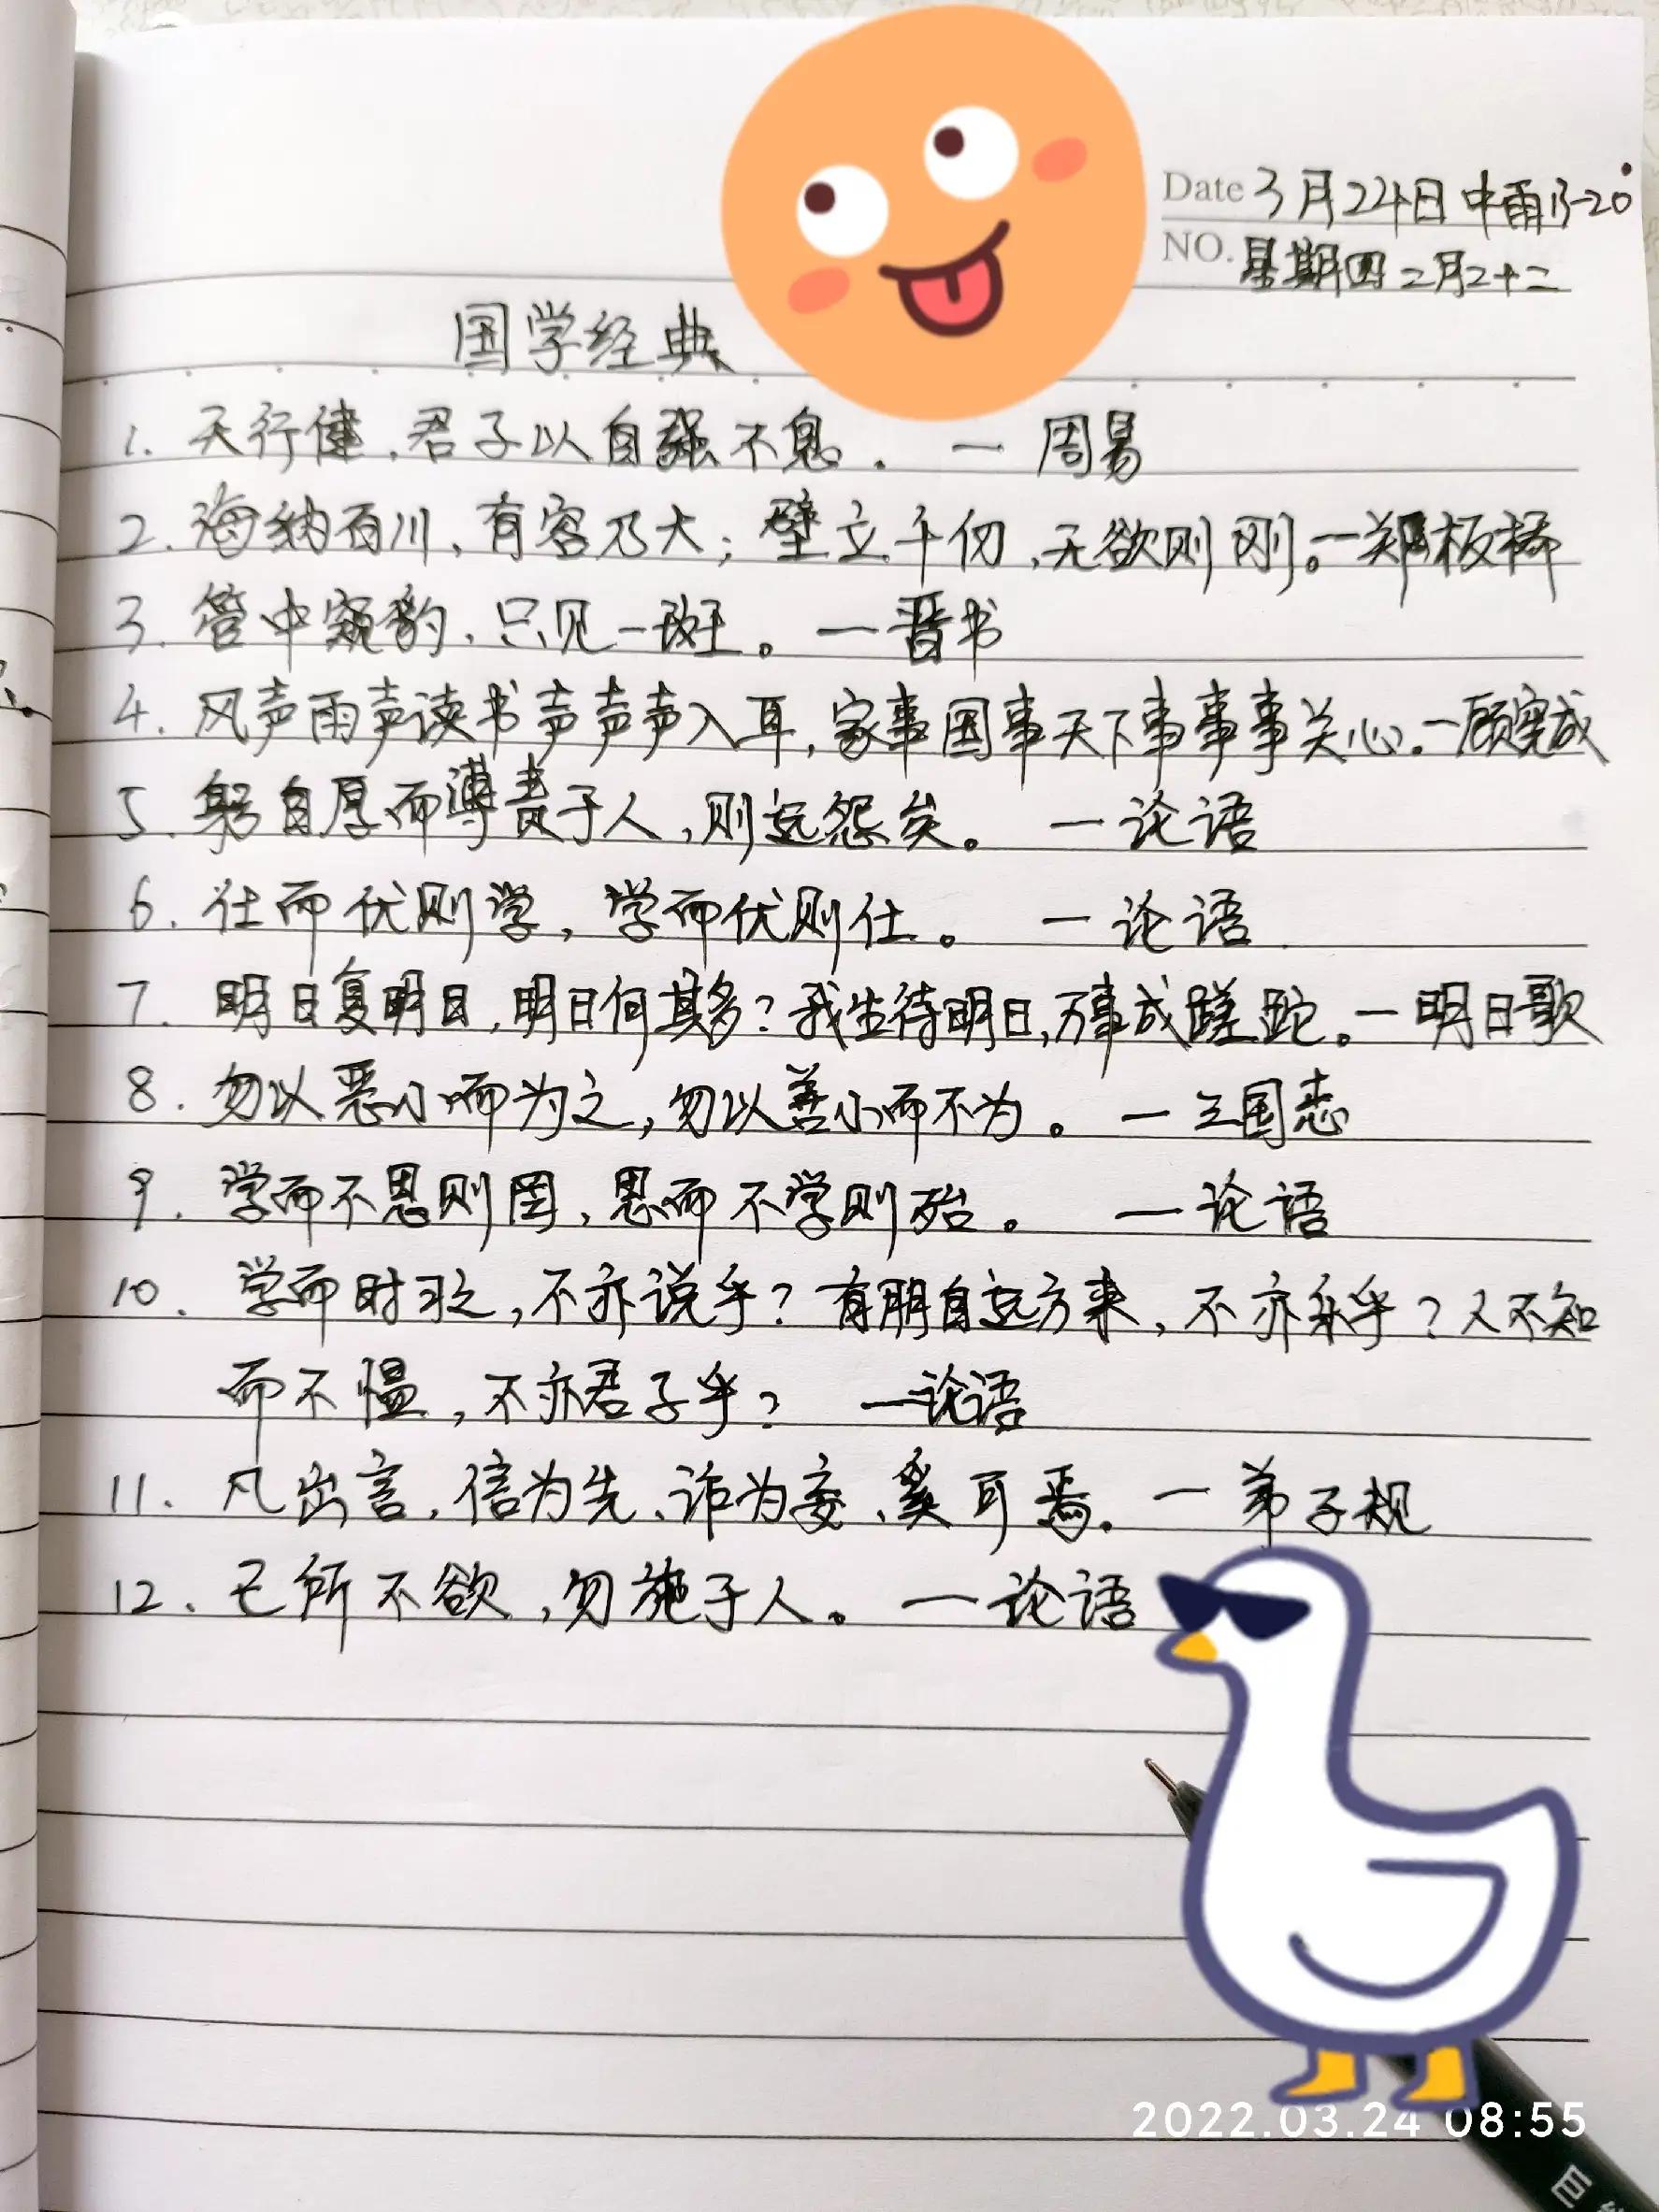 Date 3月24日 中雨 13-20°
NO. 星期四 二月二十二
国学经典
1. 天行健，君子以自强不息。 — 周易
2. 海纳百川，有容乃大；壁立千仞，无欲则刚。—郑板桥
3. 管中窥豹，只见一斑。 —晋书
4. 风声雨声读书声声声入耳，家事国事天下事事事关心。—顾宪成
5. 躬自厚而薄责于人，则远怨矣。 —论语
6. 仕而优则学，学而优则仕。 —论语
7. 明日复明日，明日何其多？我生待明日，万事成蹉跎。—明日歌
8. 勿以恶小而为之，勿以善小而不为。 —三国志
9. 学而不思则罔，思而不学则殆。 —论语
10. 学而时习之，不亦说乎？有朋自远方来，不亦乐乎？人不知
而不愠，不亦君子乎？ —论语
11. 凡出言，信为先、诈为妄、奚可焉。—弟子规
12. 己所不欲，勿施于人。—论语
2022.03.24 08:55